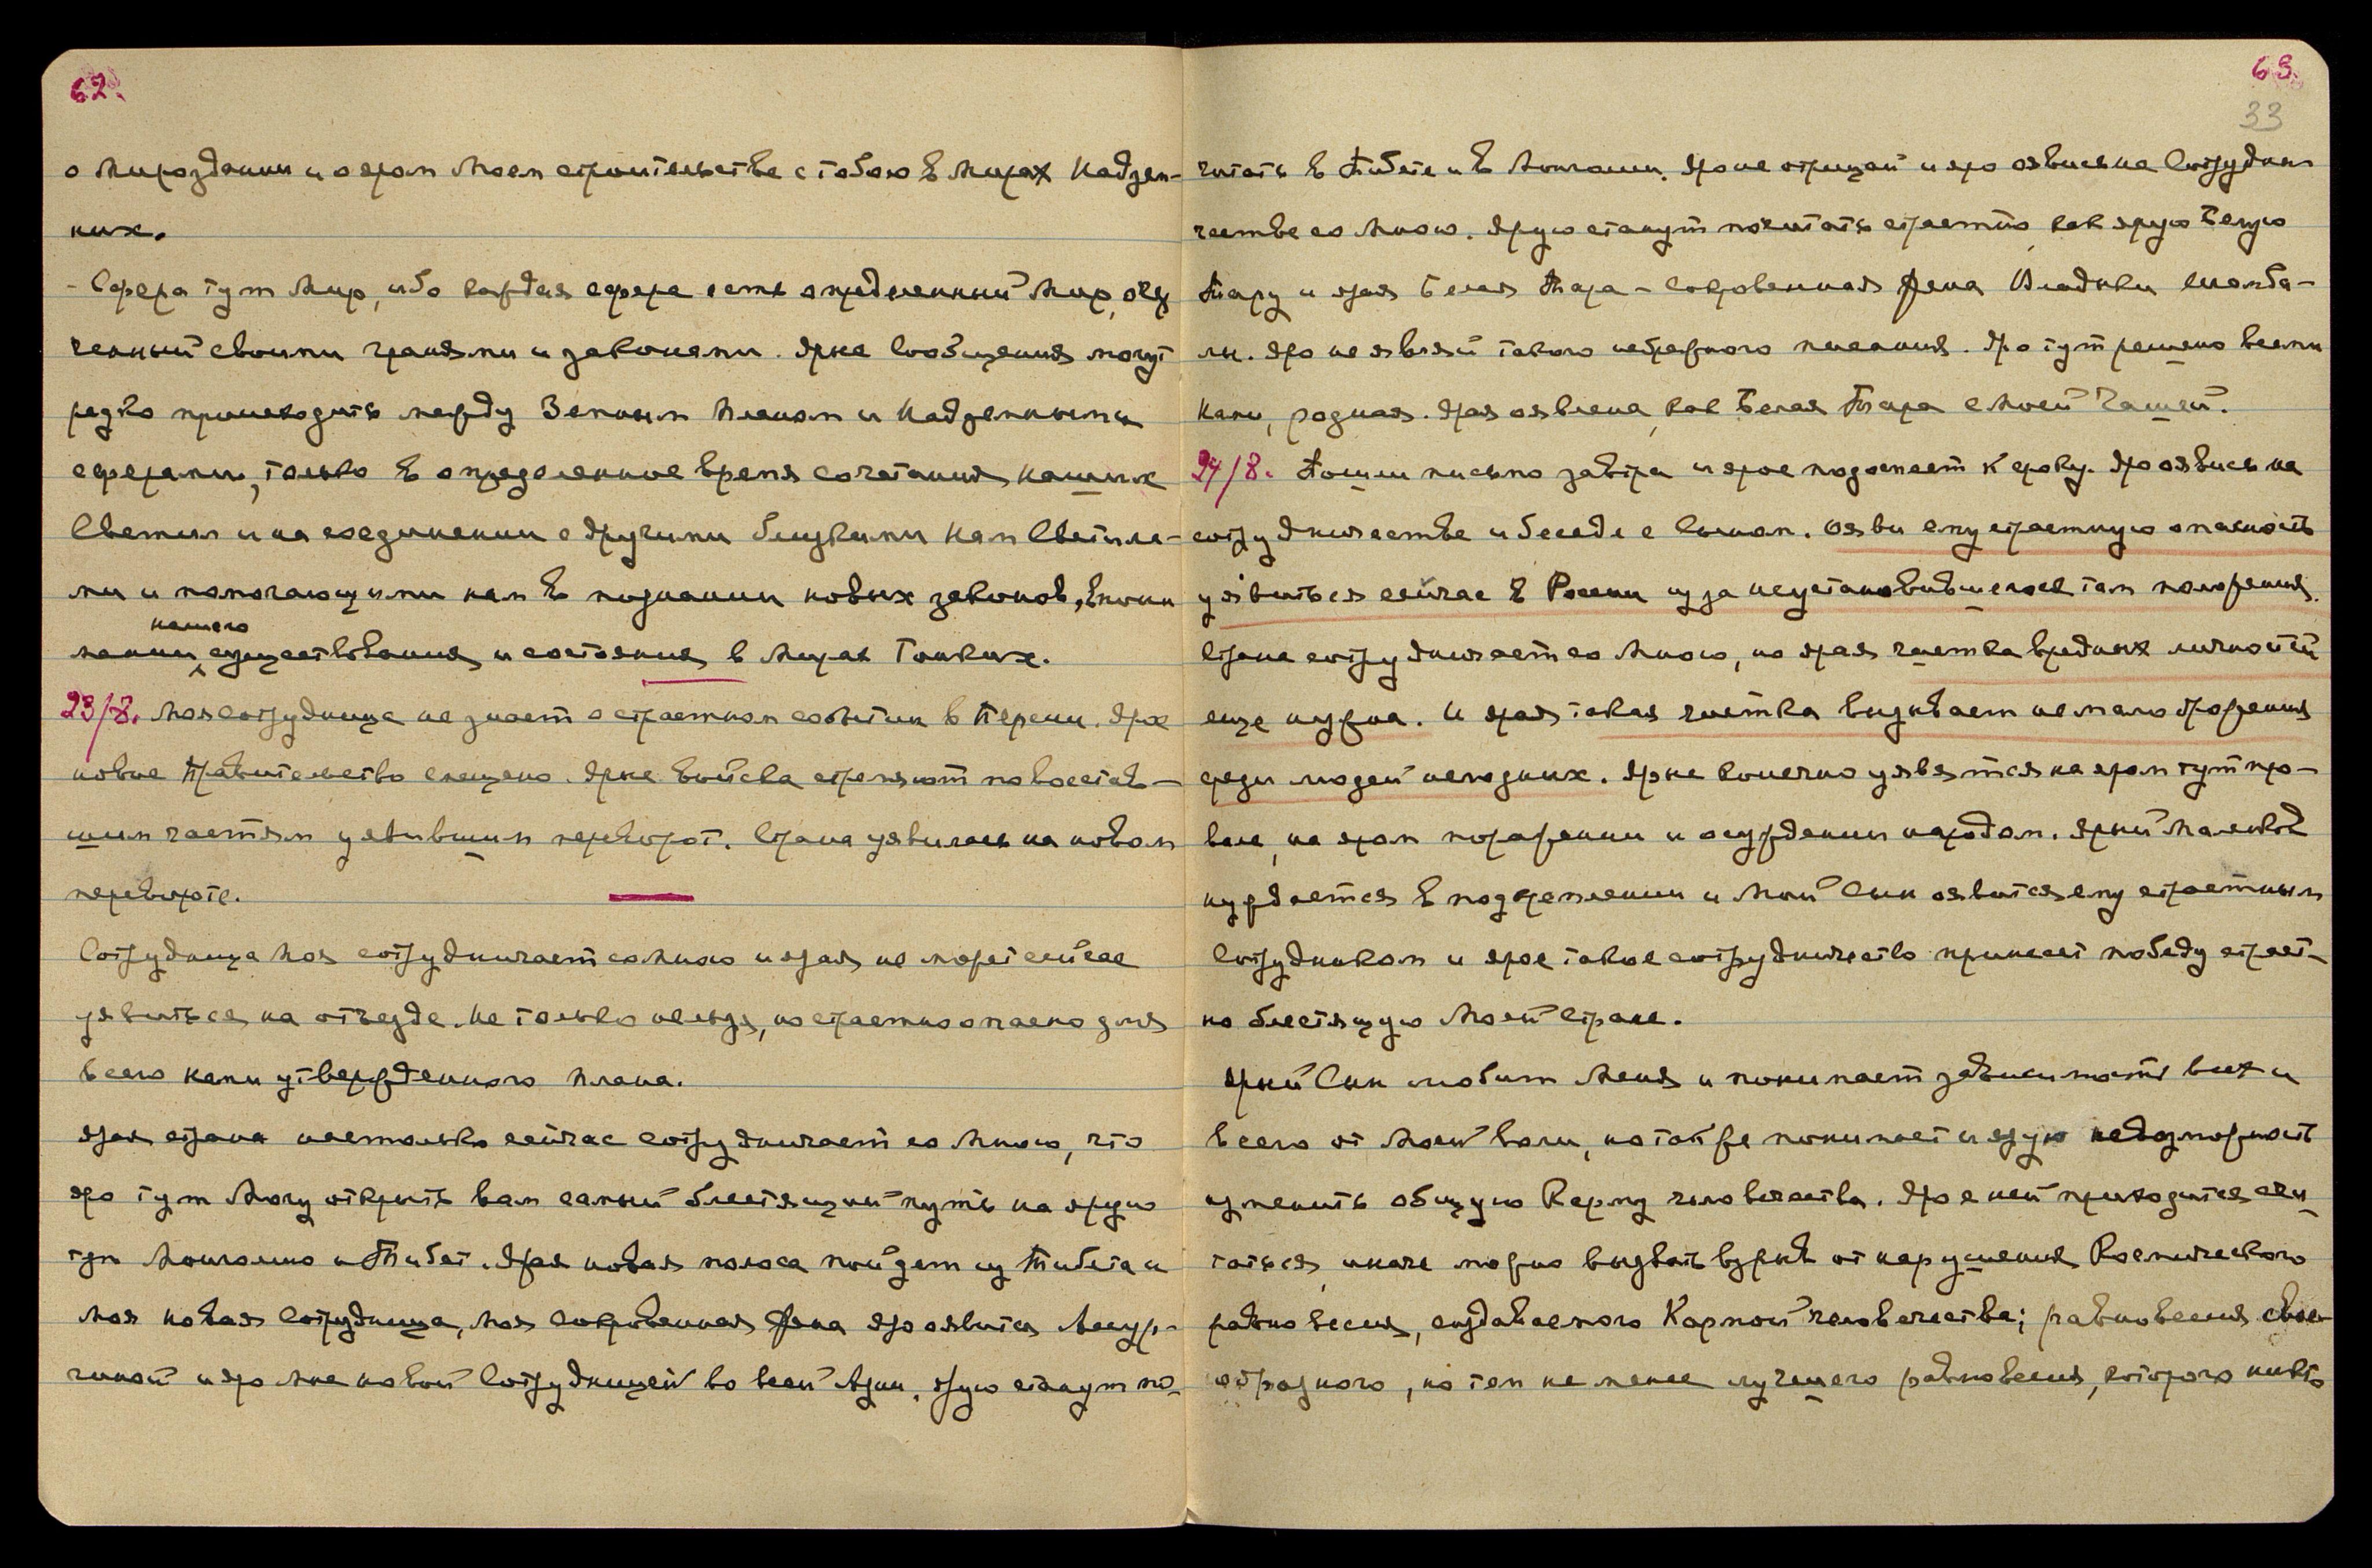 62.
о Мироздании и о яром Моем строительстве с тобою в Мирах Надзем-
ных.
- Сфера тут Мир, ибо каждая сфера есть определенный Мир, очер
ченный своими гранями и законами. Ярые сообщения могут
редко происходить между Земным планом и Надземными
сферами, только в определенное время сочетания наших
Светил и на соединении с другими близкими нам Светила-
ми и помогающими нам в познании новых законов, в пони
мании нашего существования и состояния в Мирах Тонких.
23/8. Моя сотрудница не знает о страстном событии в Персии. Ярое
новое Правительство смещено. Ярые войска стреляют по восстав-
шим частям уявившим переворот. Страна уявилась на новом
перевороте.
Сотрудница Моя сотрудничает со Мною и ярая не может сейчас
уявиться на отъезде. Не только нельзя, но страстно опасно для
всего нами утвержденного плана.
Ярая страна настолько сейчас сотрудничает со Мною, что
яро тут Могу открыть вам самый блестящий путь на ярую
тут Монголию и Тибет. Ярая новая полоса пойдет из Тибета и
Моя новая Сотрудница, Моя Сокровенная Жена яро оявится
и яро Мне новой Сотрудницей во всей Азии, ярую станут по-
63.
33
читать в Тибете и в Монголии. Яро не отрицай и яро оявись на Сотрудни
честве со Мною. Ярую станут почитать страстно, как ярую Белую
Тару и ярая Белая Тара - Сокровенная Жена Владыки Шамба-
лы. Яро не являй такого небрежного писания. Яро тут решено всеми
Нами, родная. Ярая оявлена, как Белая Тара с Моей Чашей.
24/8. Пошли письмо завтра и ярое подоспеет к сроку. Яро оявись на
сотрудничестве и беседе с Сыном. Ояви ему страстную опасность
уявиться сейчас в России из за неустановившегося там положения.
Страна сотрудничает со Мною, но ярая чистка вредных личностей
еще нужна. И ярая такая чистка вызывает не мало брожения
среди людей негодных. Ярые конечно уявятся на яром тут про-
вале, на яром поражении и осуждении народом. Ярый Маленков
нуждается в подкреплении и Мой Сын оявится ему страстным
Сотрудником и ярое такое сотрудничество принесет победу страст-
но блестящую Моей Стране.
Ярый Сын любит Меня и понимает зависимость всех и
всего от Моей воли, но также понимает и ярую невозможность
изменить общую Карму человечества. Яро с ней приходится счи
таться, иначе можно вызвать взрыв от нарушения Космического
равновесия, создаваемого Кармой человечества; равновесия свое-
образного, но тем не менее лучшего равновесия, которого никто